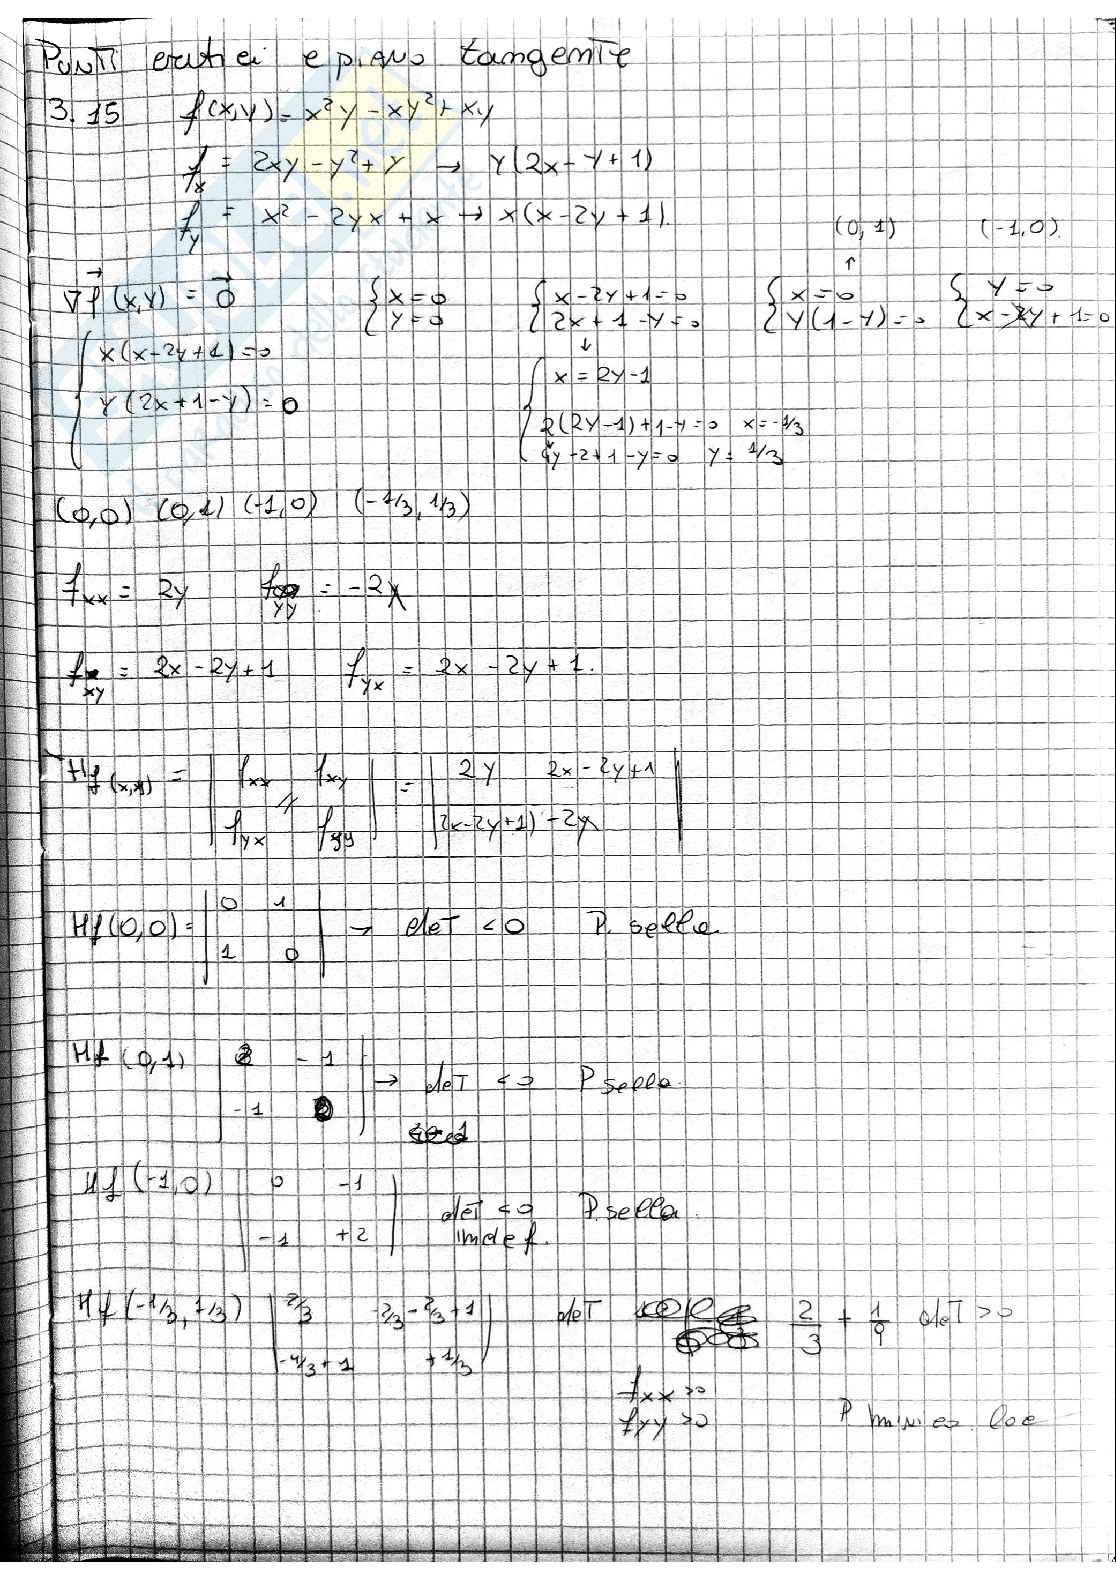 Punti critici e piano tangente
3.15 f(x,y) = x²y - xy² + xy
fx = 2xy - y² + y → y(2x - y + 1)
fy = x² - 2yx + x → x(x - 2y + 1).
(0,1) (-1,0).
↑
∇f(x,y) = 0 { x=0 { x-2y+1=0 { x=0 { y=0
{ y=0 { 2x+1-y=0 { y(1-y)=0 { x-2y+1=0
{ x(x-2y+1)=0 ↓
{ x = 2y-1
y(2x+1-y)=0
2(2y-1)+1-y=0 x=-1/3
4y-2+1-y=0 y=1/3
(0,0) (0,1) (-1,0) (-1/3, 1/3)
fxx = 2y fyy = -2x
fxy = 2x - 2y + 1 fyx = 2x - 2y + 1.
Hf(x,y) = | fxx fxy | = | 2y 2x-2y+1 |
| fyx fyy | | 2x-2y+1) -2x |
Hf(0,0) = | 0 1 | → det < 0 P. sella
| 1 0 |
Hf(0,1) | 2 -1 | → det < 0 P sella.
| -1 0 |
Hf(-1,0) | 0 -1 | det < 0 P. sella.
| -1 +2 | indef.
Hf(-1/3, 1/3) | 2/3 -2/3-2/3+1 | det 2/3 + 1/9 det > 0
| -4/3+1 +1/3 |
fxx > 0
fyy > 0 P minimo loc